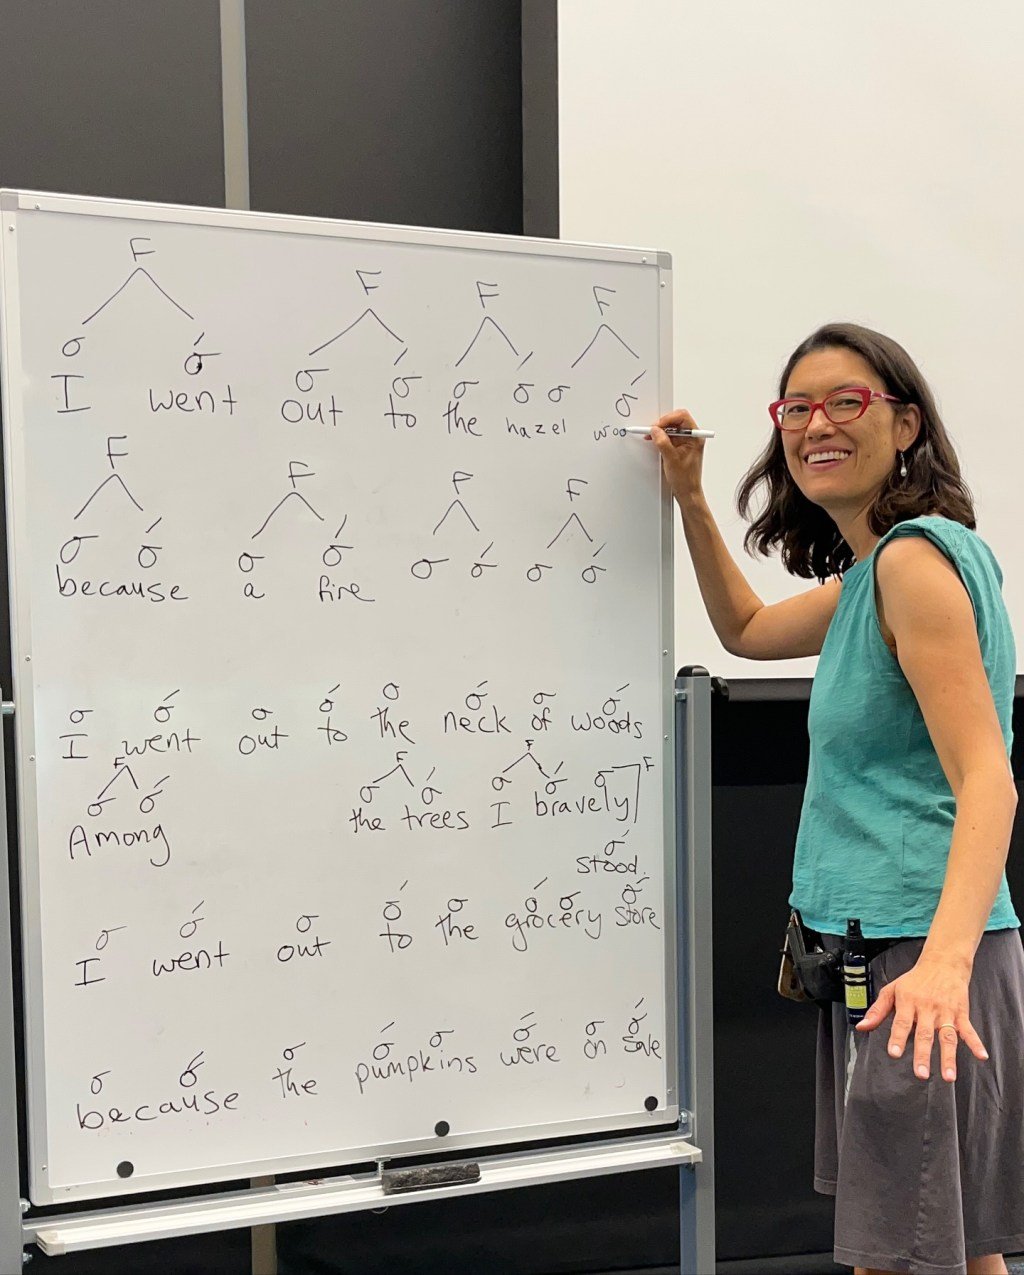 F
F F F
σ σ́ σ σ́ σ σ́ σ σ́
I went out to the hazel woo
F F F F
σ σ́ σ σ́ σ σ́ σ σ́
because a fire
σ σ́ σ σ́ σ σ́ σ σ́
I went out to the neck of woods
F F F F
σ σ́ σ σ́ σ σ́ σ
Among the trees I bravely
σ́
stood.
σ σ́ σ σ́ σ σ́ σ σ́
I went out to the grocery store
σ σ́ σ σ́ σ σ́ σ σ́
because the pumpkins were on sale